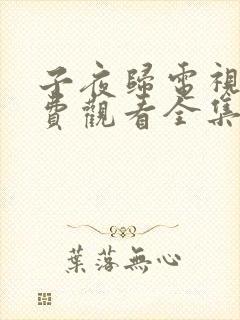 子夜歸電視
費觀看全集
葉落無心